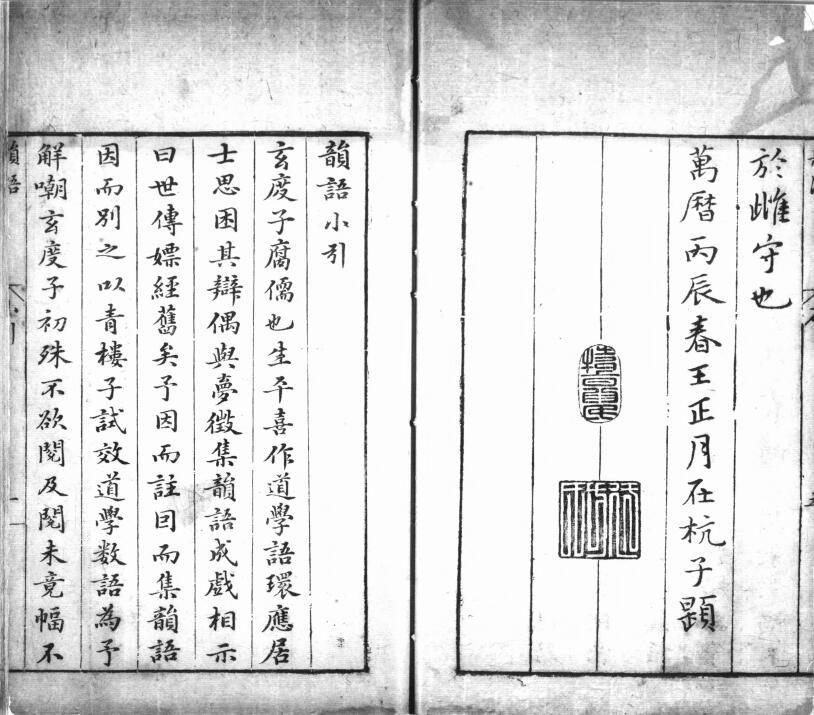 於雌守也
萬曆丙辰春王正月在杭子題
韻語小引
玄度子腐儒也生平喜作道學語環應居
士思困其辯偶與夢徵集韻語成戲相示
曰世傳嫖經舊矣予因而註因而集韻語
因而別之以青樓子試效道學数語為予
解嘲玄度子初殊不欲閱及閱未竟幅不
韻語